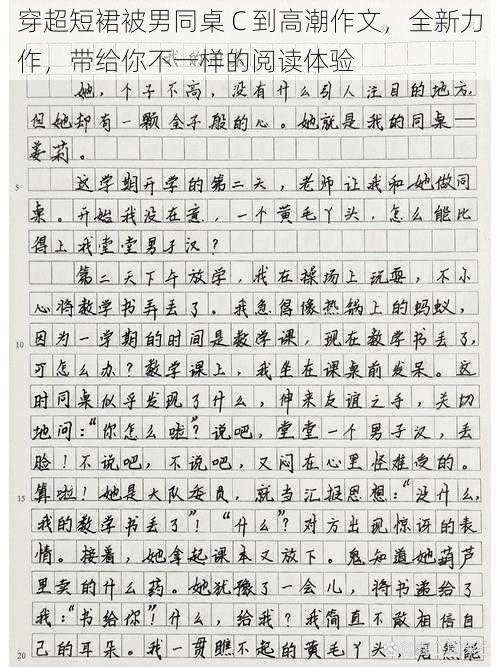 她，个子不高，没有什么引人注目的地方，
但她却有一颗金子般的心。她就是我的同桌——
姜莉。
5 这学期开学的第二天，老师让我和她做同
桌。开始我没在意，一个黄毛丫头，怎么能比
得上我堂堂男子汉？
第二天下午放学，我在操场上玩耍，不小
心将数学书弄丢了。我急得像热锅上的蚂蚁，
10 因为一学期的时间是数学课，现在数学书丢了，
可怎么办？数学课上，我坐在课桌前发呆。这
时同桌似乎发现了什么，伸来友谊之手，关切
地问：“你怎么啦？说吧，堂堂一个男子汉，丢
脸！不说吧，不说吧，又闷在心里怪难受的。
15 算啦！她是大队委员，就当汇报思想：“没什么，
我的数学书丢了”！“什么”？对方出现惊讶的表
情。接着，她拿起课本又放下。鬼知道她葫芦
里卖的什么药。她犹豫了一会儿，将书递给了
我：“书给你”！什么，给我？我简直不敢相信自
20 己的耳朵。我一贯瞧不起的黄毛丫头，竟然能